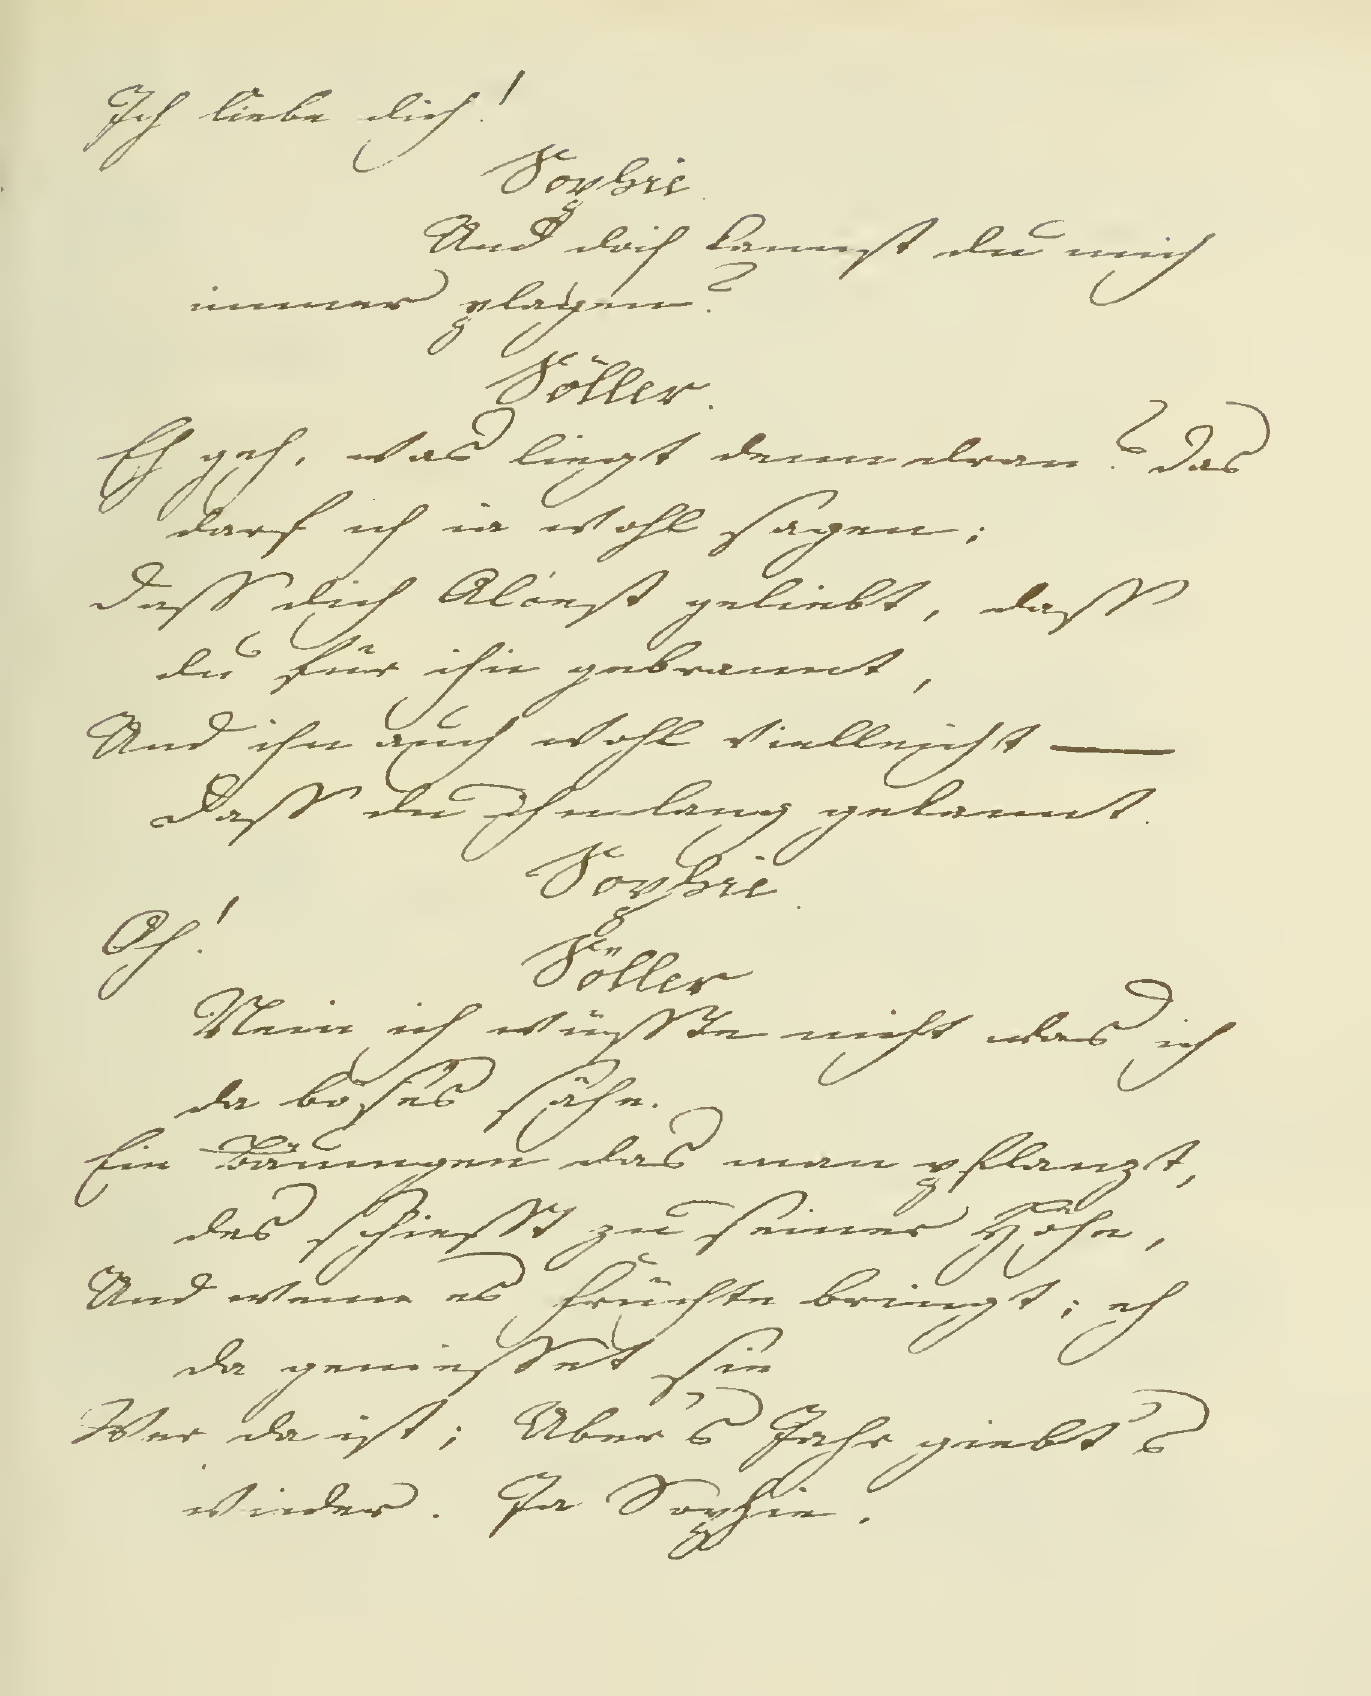 Ich liebe dich!
Sophie.
Und doch kannst du mich
immer plagen?
Söller.
Eh geh, was liegt denn dran? Das
darf ich ia wohl sagen;
Dass dich Alcest geliebt, dass
du für ihn gebrannt,
Und ihn auch wohl vielleicht —
Dass du ihn lang gekannt.
Sophie.
Oh!
Söller
Nein ich wüsste nicht was ich
da böses sähe.
Ein Bäumgen das man pflanzt,
das schiesst zu seiner Höhe,
Und wenn es Früchte bringt; eh
da geniesset sie
Wer da ist; Über's Jahr giebt's
wieder. Ja Sophie.